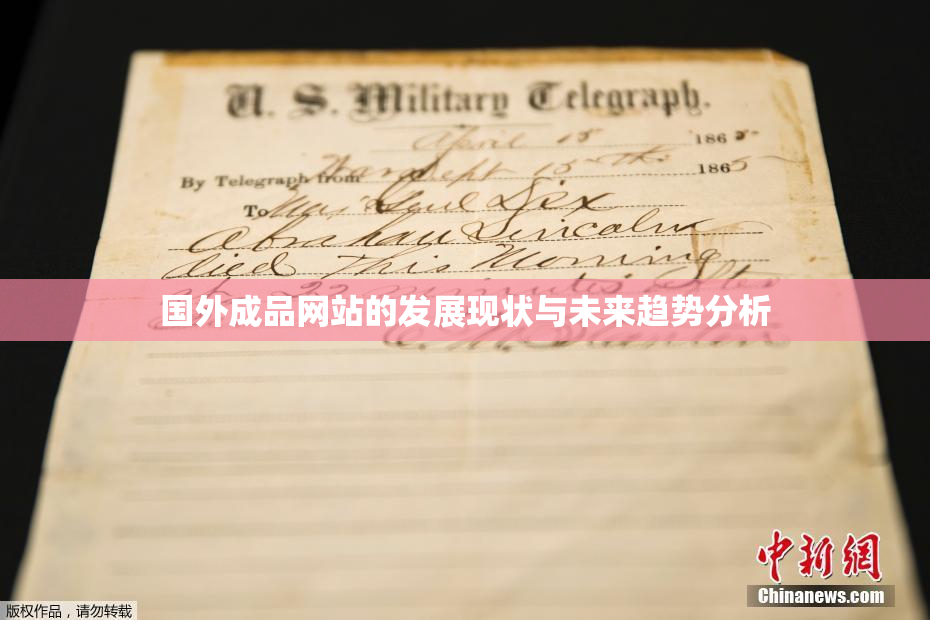 U. S. Military Telegraph.
April 15 1865
By Telegraph from War Dept 15th 1865
To Maj Genl Dix
Abraham Lincoln
died This Morning
at 22 minutes after
国外成品网站的发展现状与未来趋势分析
中新网
Chinanews.com
版权作品，请勿转载